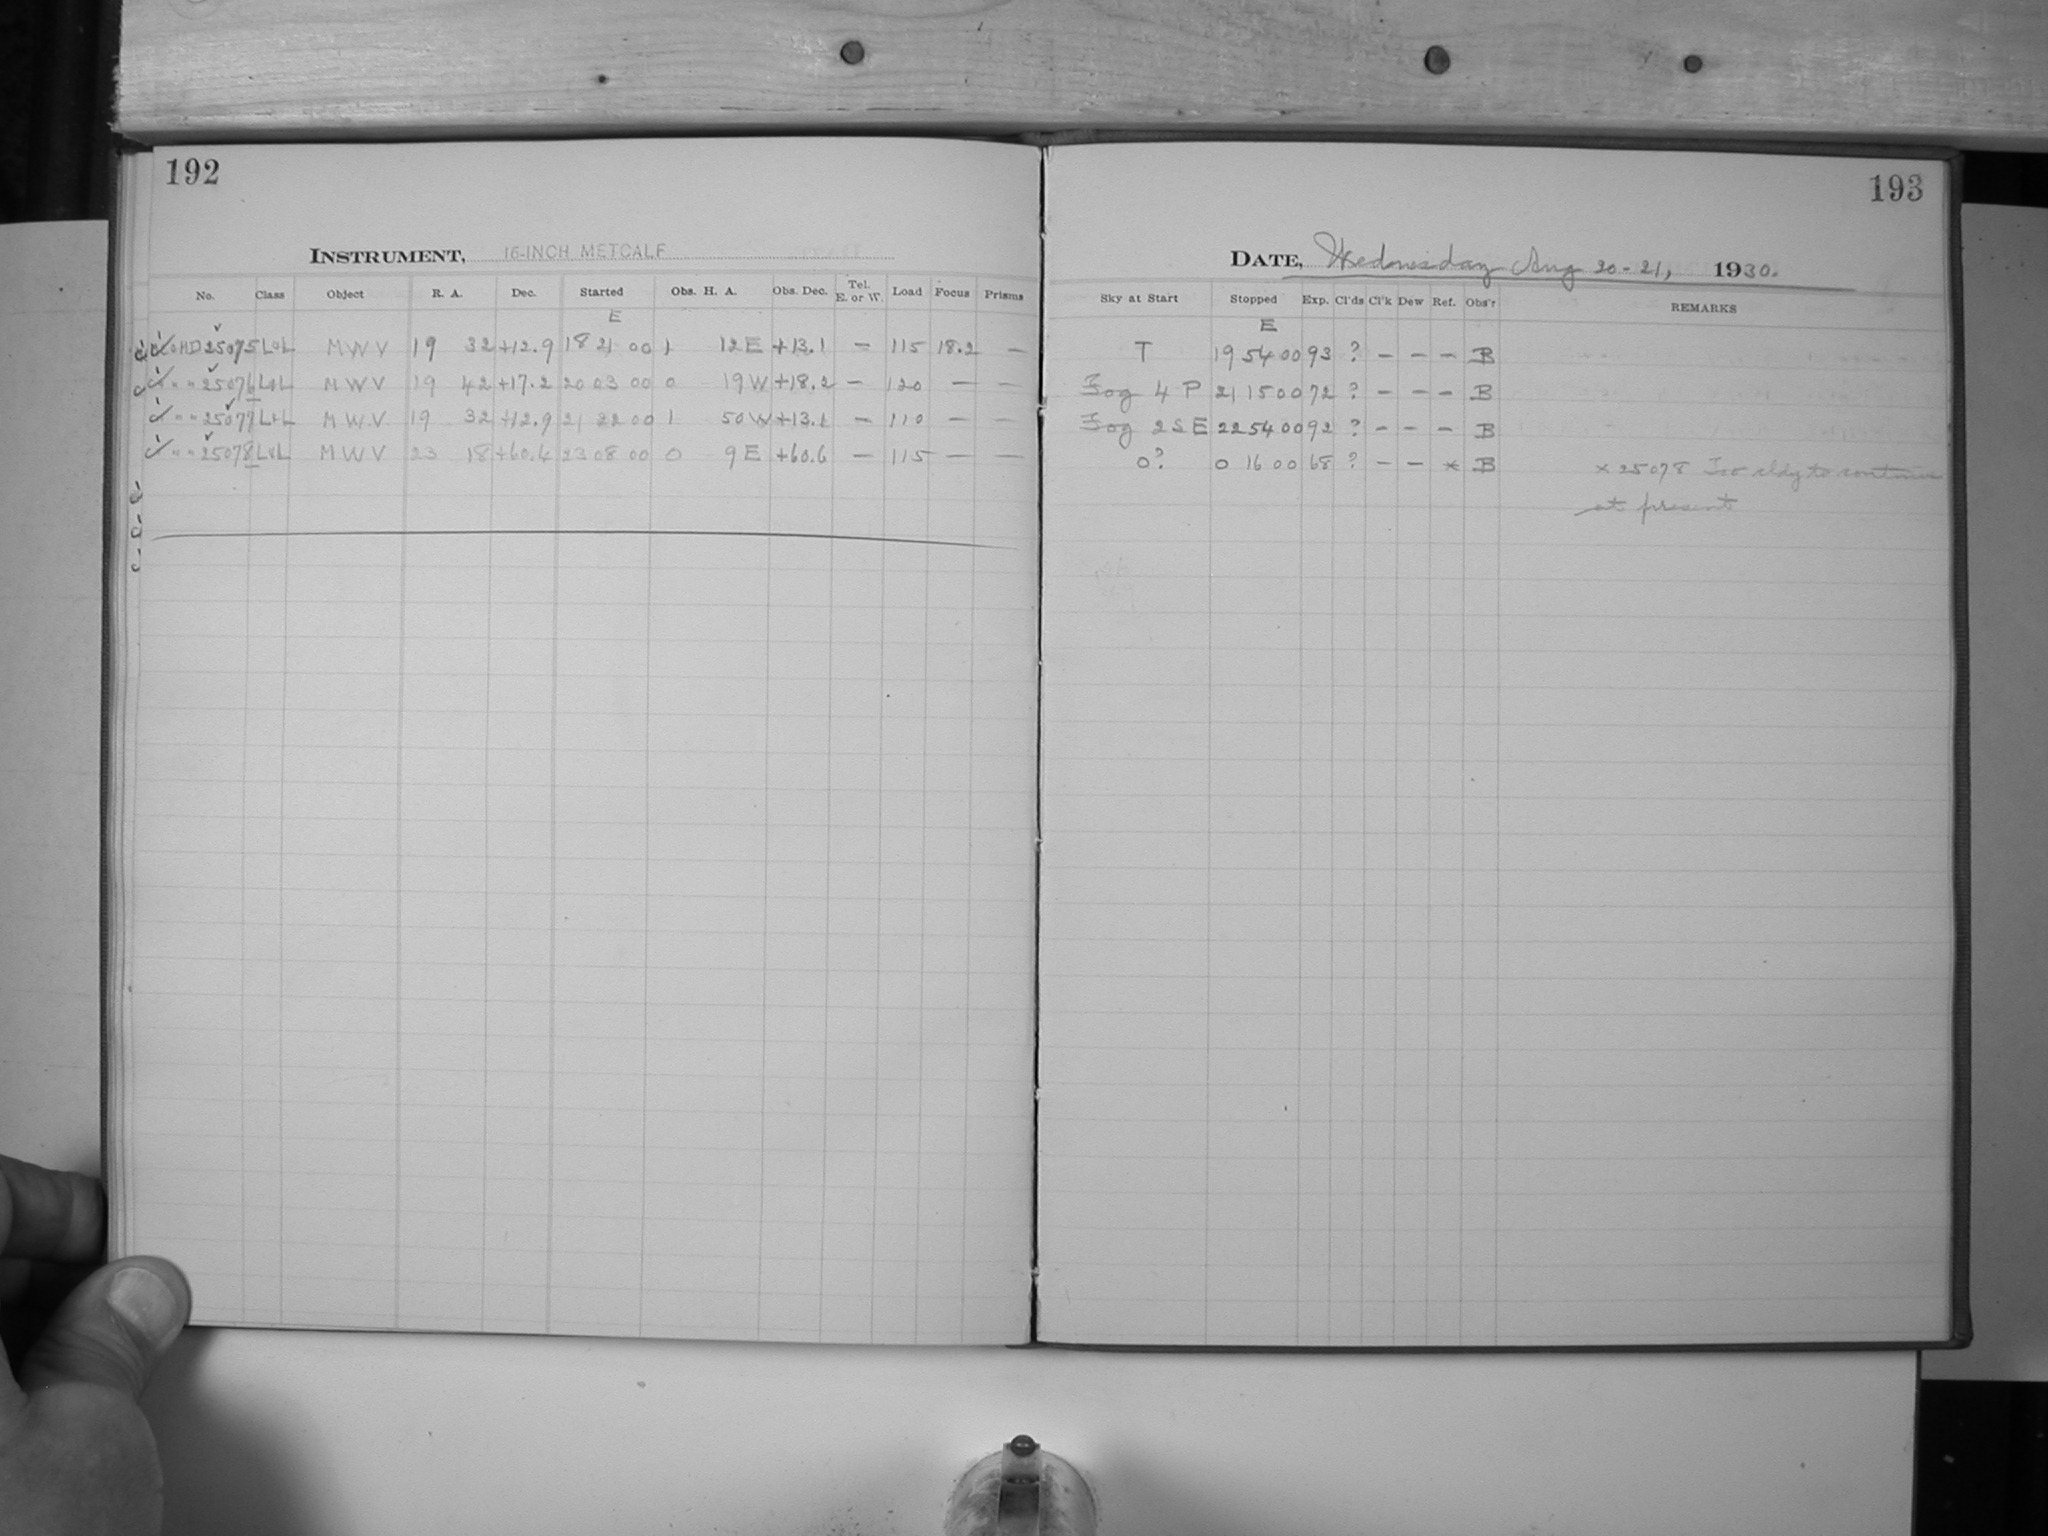 192
INSTRUMENT, 16-INCH METCALF
No. Class Object R. A. Dec. Started Obs. H. A. Obs. Dec. Tel. E. or W. Load Focus Prisms
E
25075 L+L M W V 19 32 +12.9 18 21 00 1 12 E +13.1 — 115 18.2 —
" " 25076 L+L M W V 19 42 +17.2 20 03 00 0 19 W +18.2 — 120 — —
" " 25077 L+L M W V 19 32 +12.9 21 22 00 1 50 W +13.1 — 110 — —
" " 25078 L+L M W V 23 18 +60.4 23 08 00 0 9 E +60.6 — 115 — —
193
DATE, Wednesday Aug 20-21, 1930.
Sky at Start Stopped Exp. Cl'ds Cl'k Dew Ref. Obs'r REMARKS
E
T 19 54 00 93 ? — — — B
Fog 4 P 21 15 00 72 ? — — — B
Fog 2 S E 22 54 00 92 ? — — — B
0? 0 16 00 68 ? — — * B × 25078 Too cldy to continue
at present